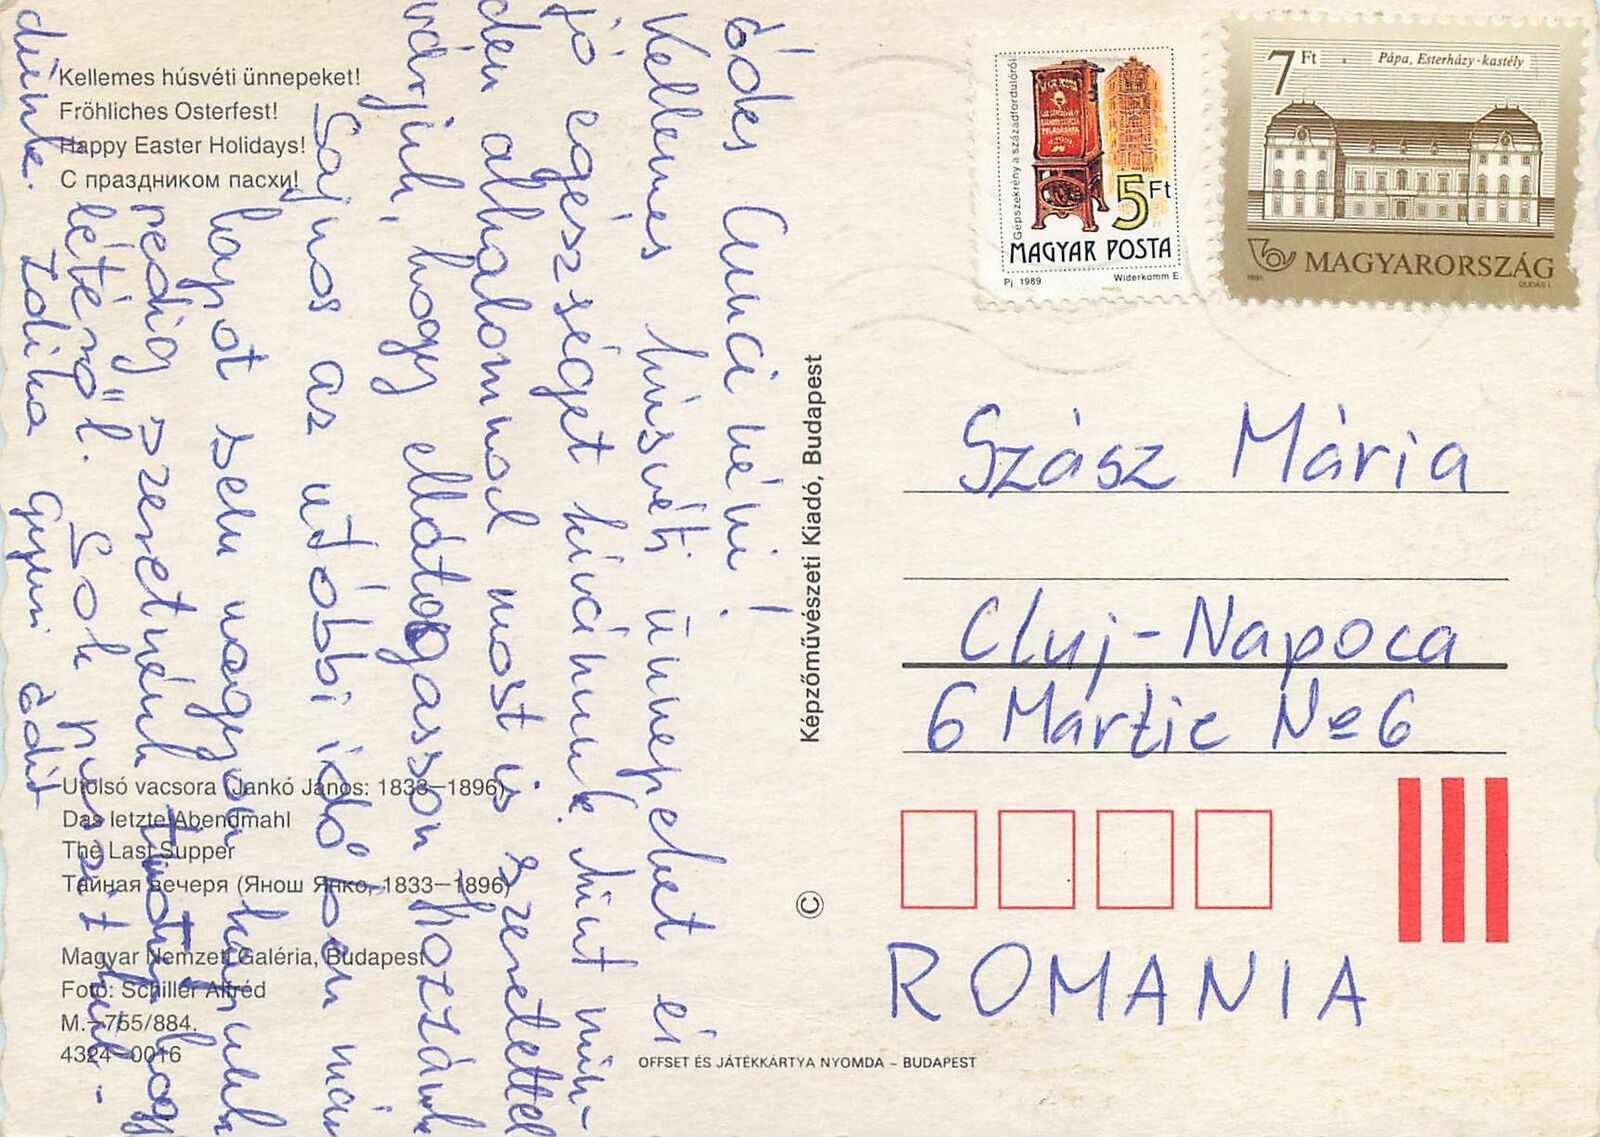 Kellemes húsvéti ünnepeket!
Fröhliches Osterfest!
Happy Easter Holidays!
С праздником пасхи!
Édes Cunci néni!
Kellemes húsvéti ünnepeket és
jó egészséget kívánunk. Mint min-
den alkalommal most is szeretettel
várjuk, hogy ellátogasson hozzánk
Sajnos az utóbbi időben már
lapot sem nagyon kapunk
pedig szeretnénk tudni hogy
létéről. Sok puszit kül-
dünk. Ildikó Gyuri Edit
Utolsó vacsora (Jankó János: 1833–1896)
Das letzte Abendmahl
The Last Supper
Тайная вечеря (Янош Янко, 1833–1896)
Magyar Nemzeti Galéria, Budapest
Fotó: Schiller Alfréd
M.–755/884.
4324–0016
Képzőművészeti Kiadó, Budapest
©
OFFSET ÉS JÁTÉKKÁRTYA NYOMDA – BUDAPEST
Gépszekrény a századfordulóról
5 Ft
MAGYAR POSTA
Pj 1989 Widerkomm E.
7 Ft Pápa, Esterházy-kastély
MAGYARORSZÁG
1991 DUDÁS L.
Szász Mária
Cluj-Napoca
6 Martie № 6
ROMANIA